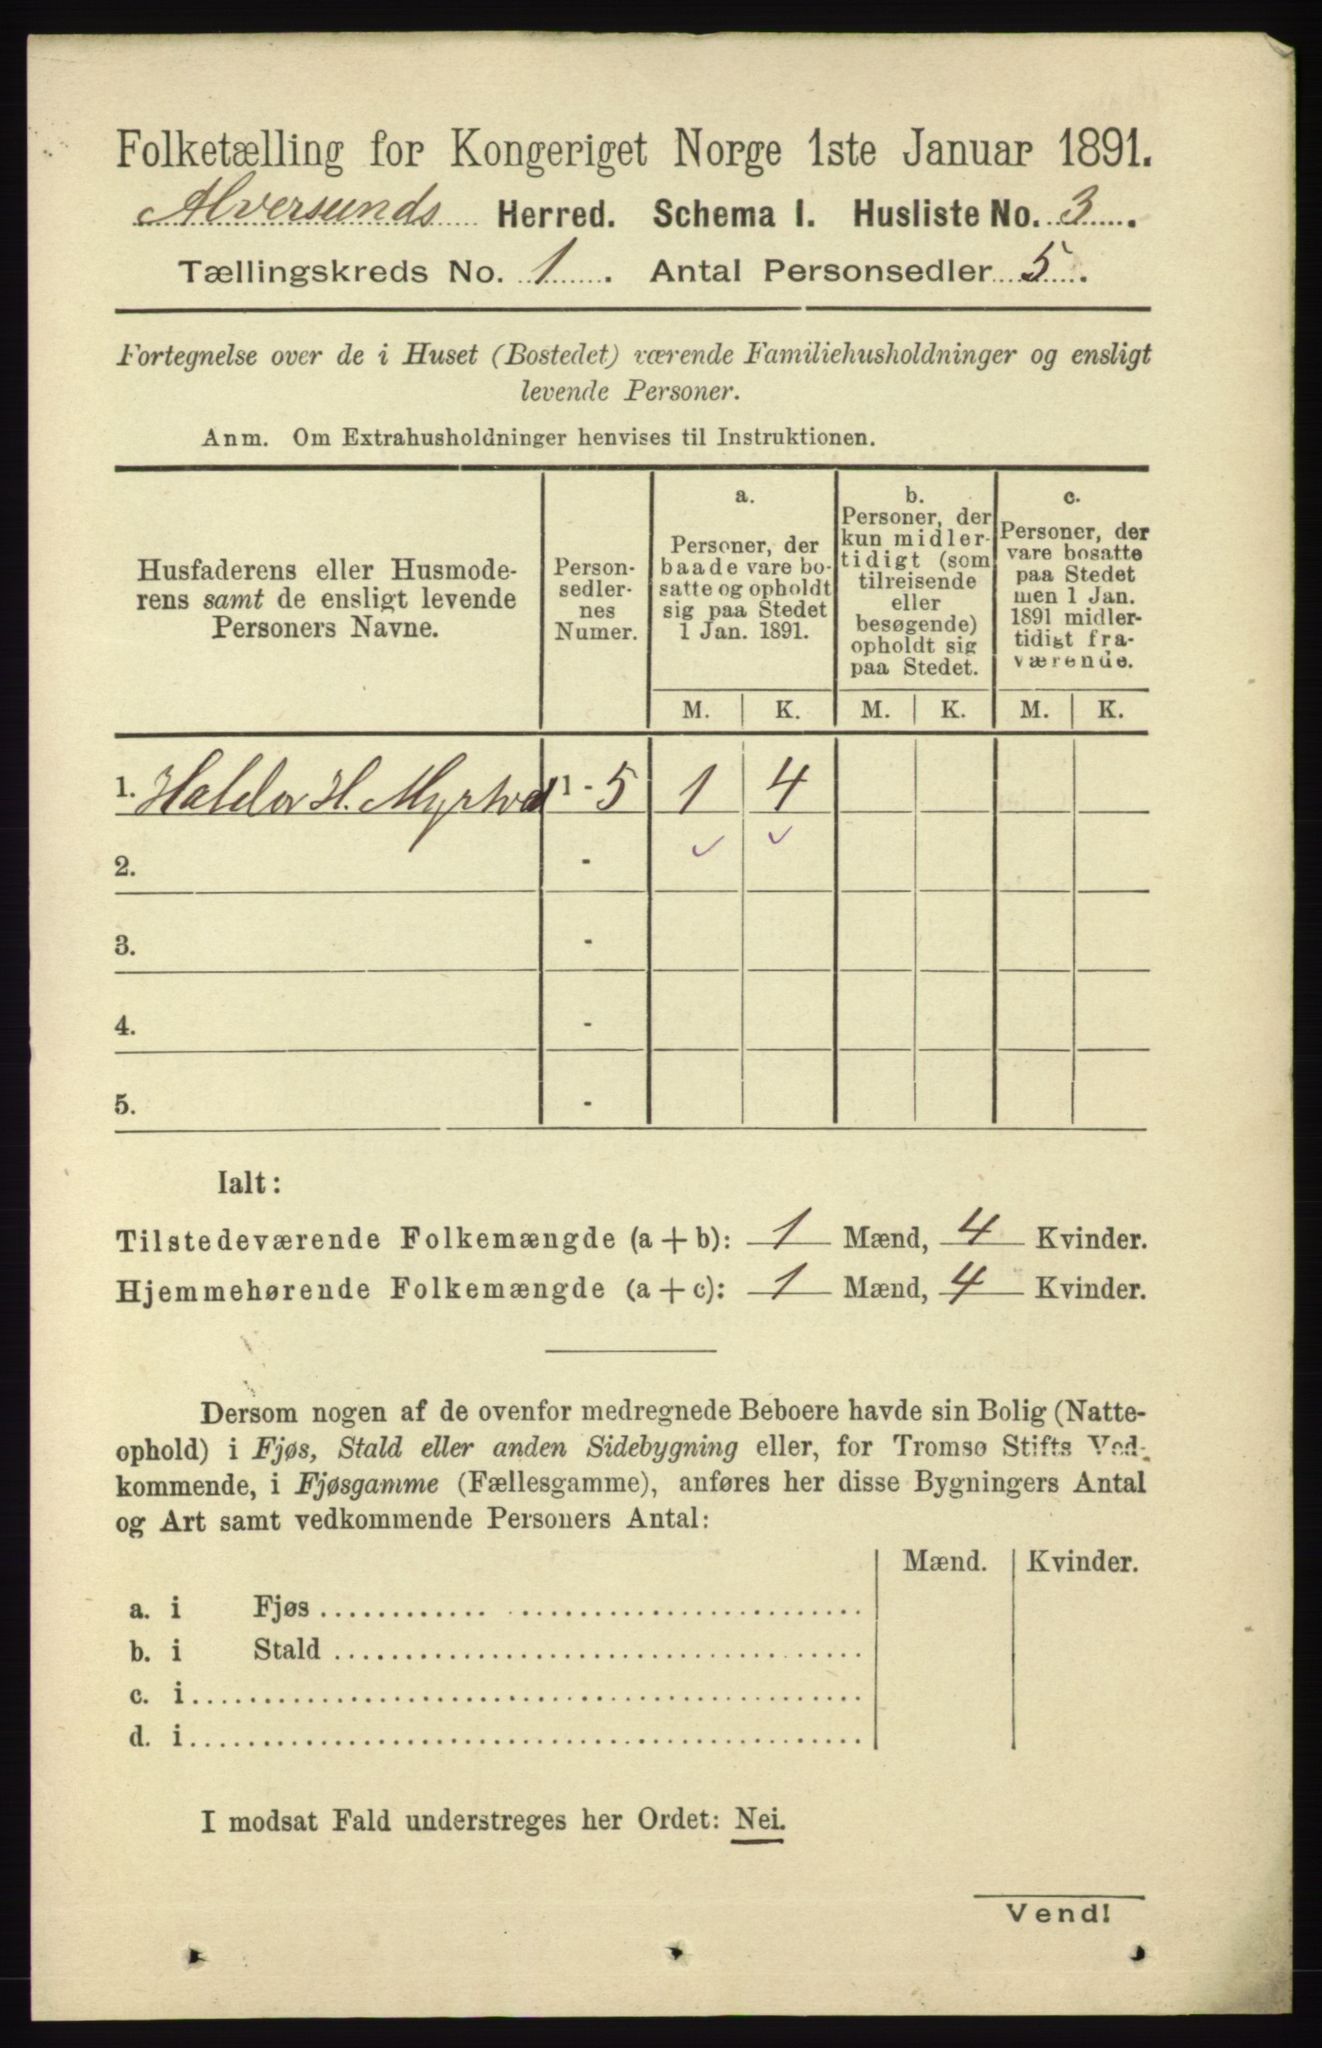 Folketælling for Kongeriget Norge 1ste Januar 1891.
Alversunds Herred. Schema I. Husliste No. 3.
Tællingskreds No. 1. Antal Personsedler 5.
Fortegnelse over de i Huset (Bostedet) værende Familiehusholdninger og ensligt
levende Personer.
Anm. Om Extrahusholdninger henvises til Instruktionen.
Husfaderens eller Husmode-
rens samt de ensligt levende
Personers Navne.
Person-
sedler-
nes
Numer.
a.
Personer, der
baade vare bo-
satte og opholdt
sig paa Stedet
1 Jan. 1891.
b.
Personer, der
kun midler-
tidigt (som
tilreisende
eller
besøgende)
opholdt sig
paa Stedet.
c.
Personer, der
vare bosatte
paa Stedet
men 1 Jan.
1891 midler-
tidigt fra-
værende.
M. K. M. K. M. K.
1. Haldor H. Myrtvedt 1 - 5 1 4
2. -
3. -
4. -
5. -
Ialt:
Tilstedeværende Folkemængde (a + b): 1 Mænd, 4 Kvinder.
Hjemmehørende Folkemængde (a + c): 1 Mænd, 4 Kvinder.
Dersom nogen af de ovenfor medregnede Beboere havde sin Bolig (Natte-
ophold) i Fjøs, Stald eller anden Sidebygning eller, for Tromsø Stifts Ved-
kommende, i Fjøsgamme (Fællesgamme), anføres her disse Bygningers Antal
og Art samt vedkommende Personers Antal:
Mænd. Kvinder.
a. i Fjøs
b. i Stald
c. i
d. i
I modsat Fald understreges her Ordet: Nei.
Vend!